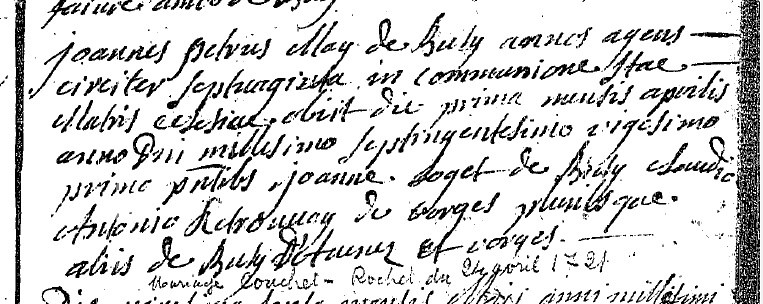 Joannes petrus May de Busy annos agens
circiter septuaginta in communione Stae
Matris ecclesiae obiit die prima mensis aprilis
anno Dni millesimo septingentesimo vigesimo
primo pntibs joanne roget de Busy claudio
Antonio de vorges plurisque
aliis de Busy et vorges.
Mariage Couchet - Rochet du 24 avril 1721
anni millesimi